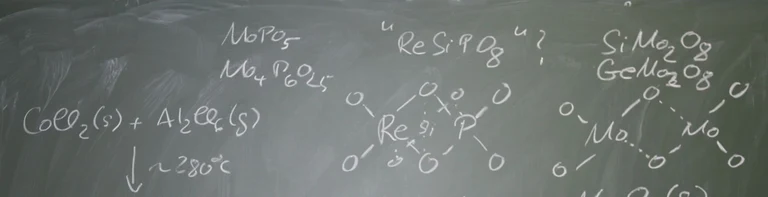 MoPO₅
Mo₄P₆O₂₅
"ReSiPO₈"?
SiMo₂O₈
GeMo₂O₈
CoCl₂(s) + Al₂Cl₆(g)
↓ ~280°C
O O O O
Re Si P
O O O O
O O O
Mo Mo
O O O